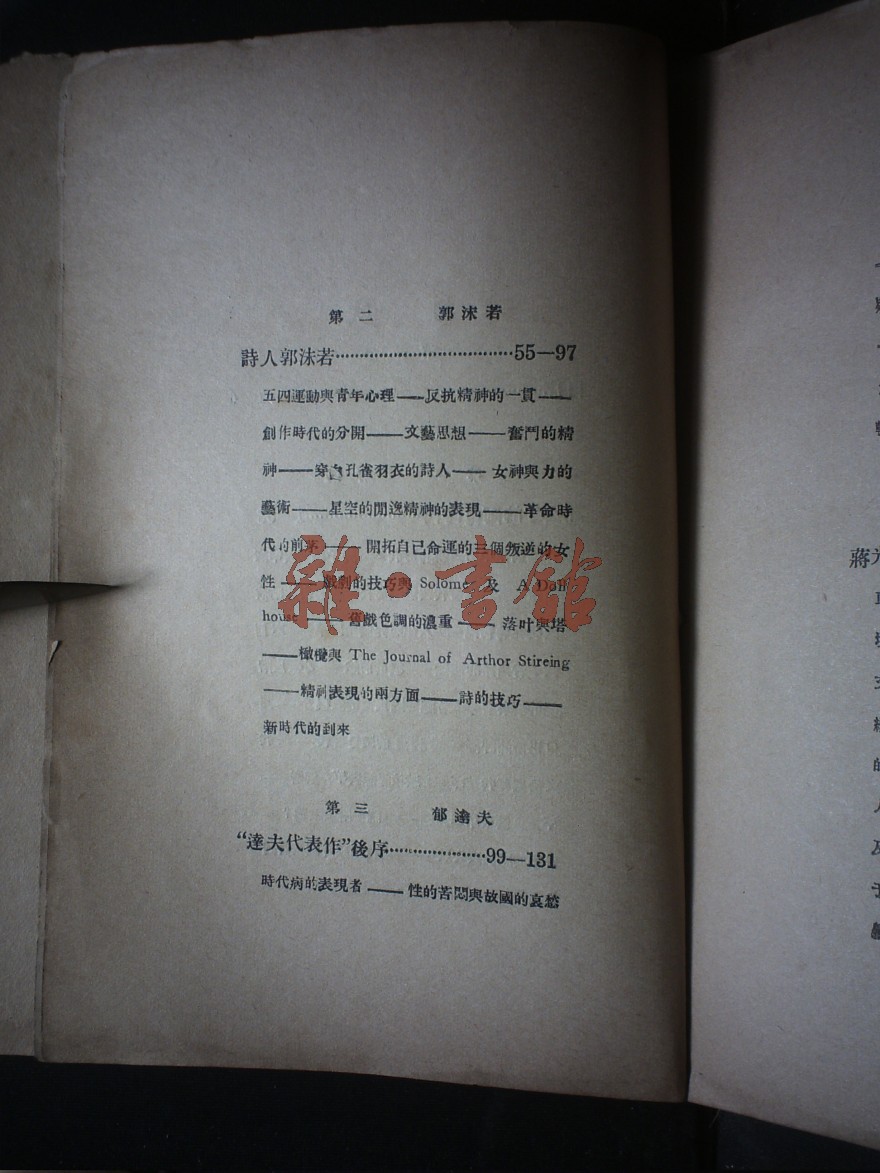 第二 郭沫若
詩人郭沫若……………………………55—97
五四運動與青年心理——反抗精神的一貫——
創作時代的分開——文藝思想——奮鬥的精
神——穿孔雀羽衣的詩人——女神與力的
藝術——星空的閒逸精神的表現——革命時
代的前茅——開拓自己命運的三個叛逆的女
性——戲劇的技巧與 Solome 及 A Doll
house——舊戲色調的濃重——落叶與塔
——橄欖與 The Journal of Arthor Stireing
——精神表現的兩方面——詩的技巧——
新時代的到來
第三 郁達夫
“達夫代表作”後序…………………99—131
時代病的表現者——性的苦悶與故國的哀愁
雜·書館
蔣
的
人
及
于